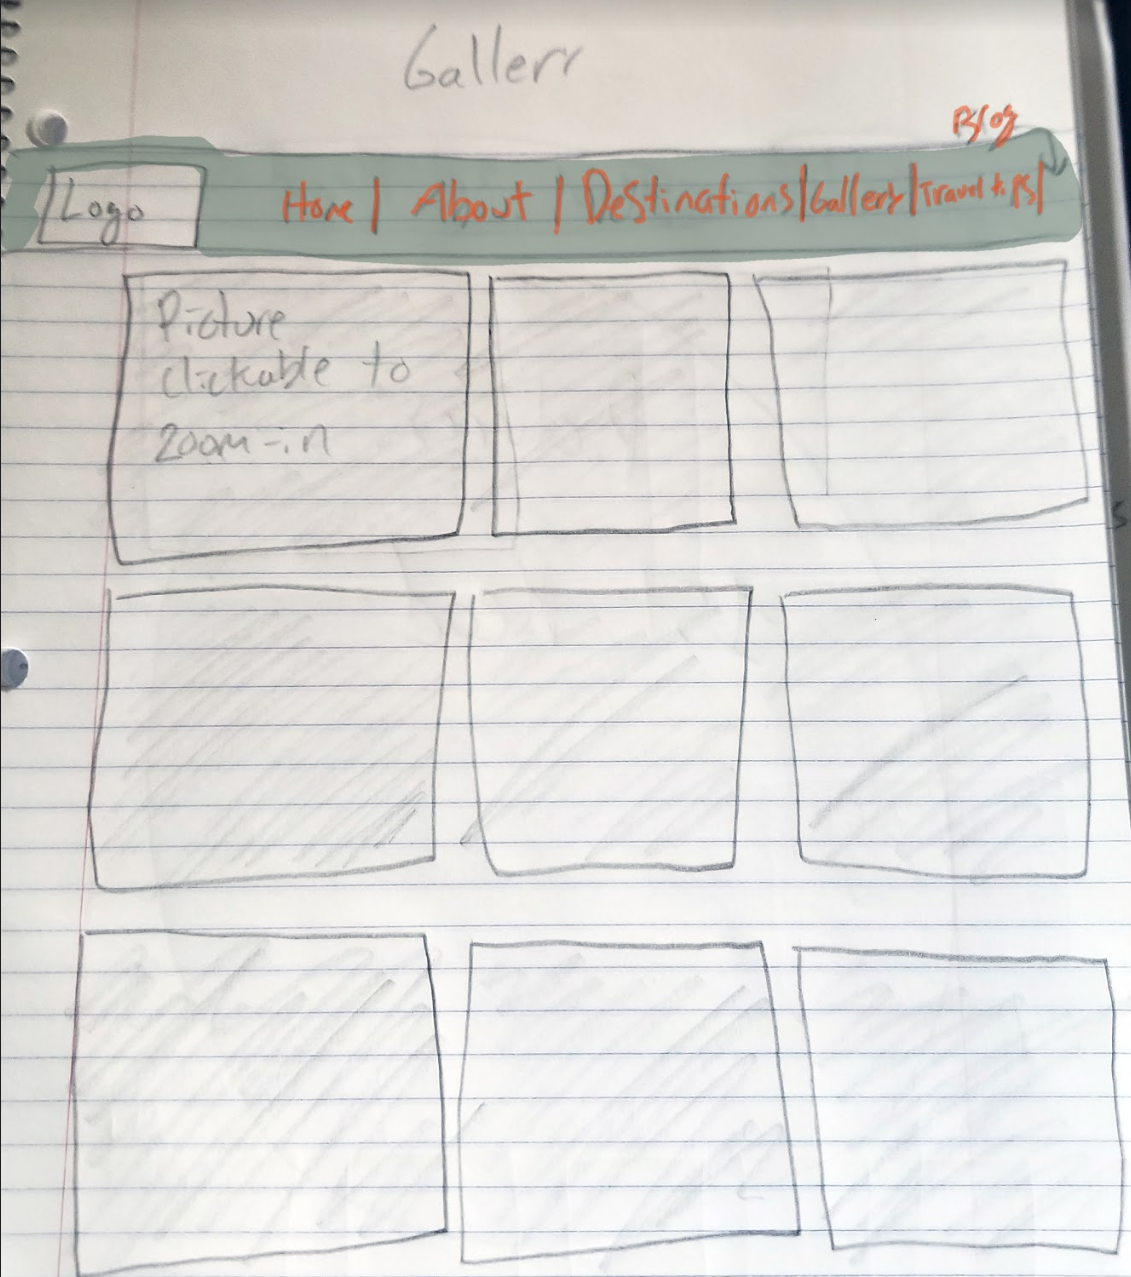 Gallery
Blog
Logo
Home | About | Destinations | Gallery | Travel tips |
Picture
clickable to
zoom-in